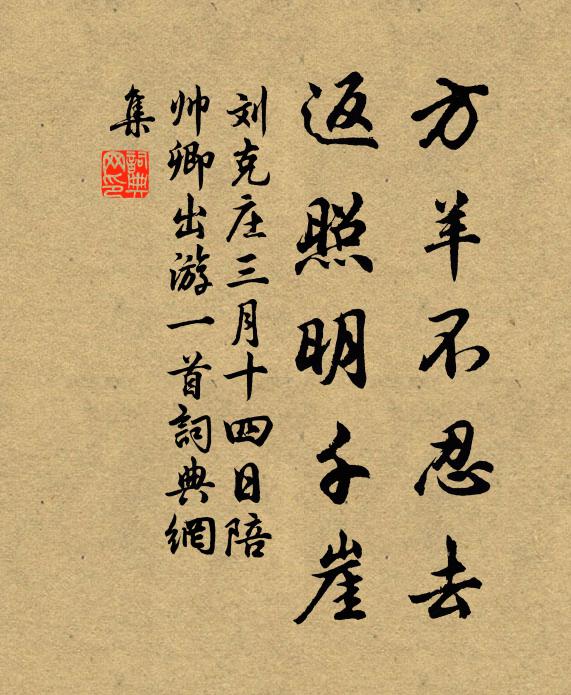 方羊不忍去
返照明千崖
刘克庄三月十四日陪
帅卿出游一首詞典網
集
詞典
网印